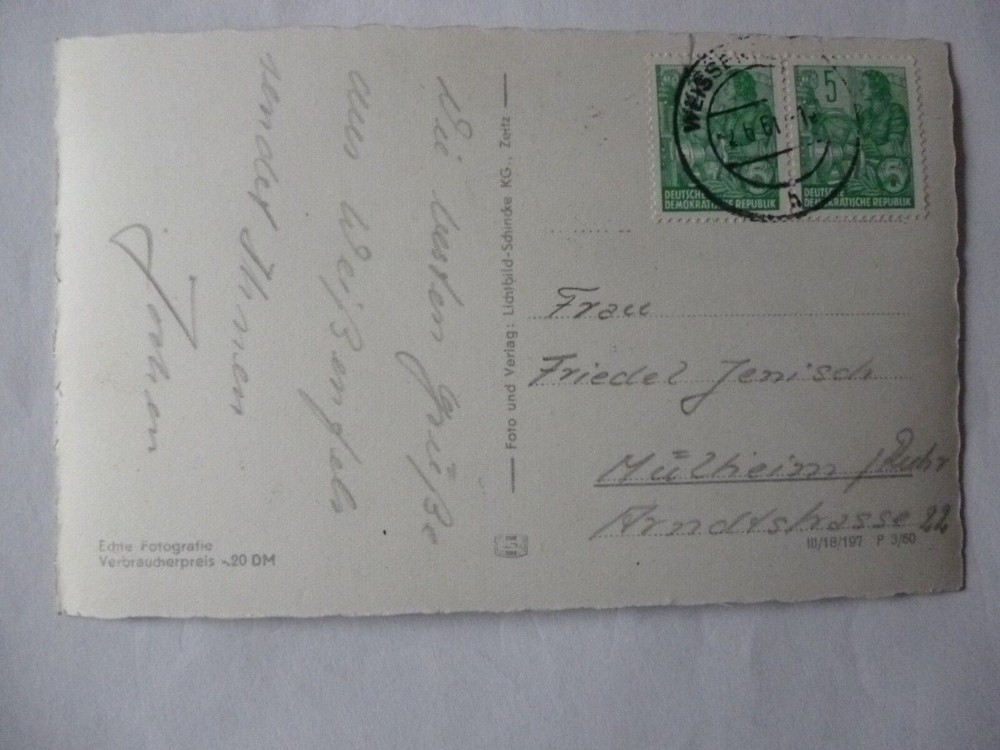 Die besten Grüße
aus Weißenfels
sendet Ihnen
Jochen
Foto und Verlag: Lichtbild-Schincke KG., Zeitz
WEISSEN
5
5
DEUTSCHE
DEMOKRATISCHE REPUBLIK
5
DEUTSCHE
DEMOKRATISCHE REPUBLIK
Frau
Friedel Jenisch
Mülheim /Ruhr
Arndtstrasse 22
III/18/197 P 3/60
Echte Fotografie
Verbraucherpreis -.20 DM